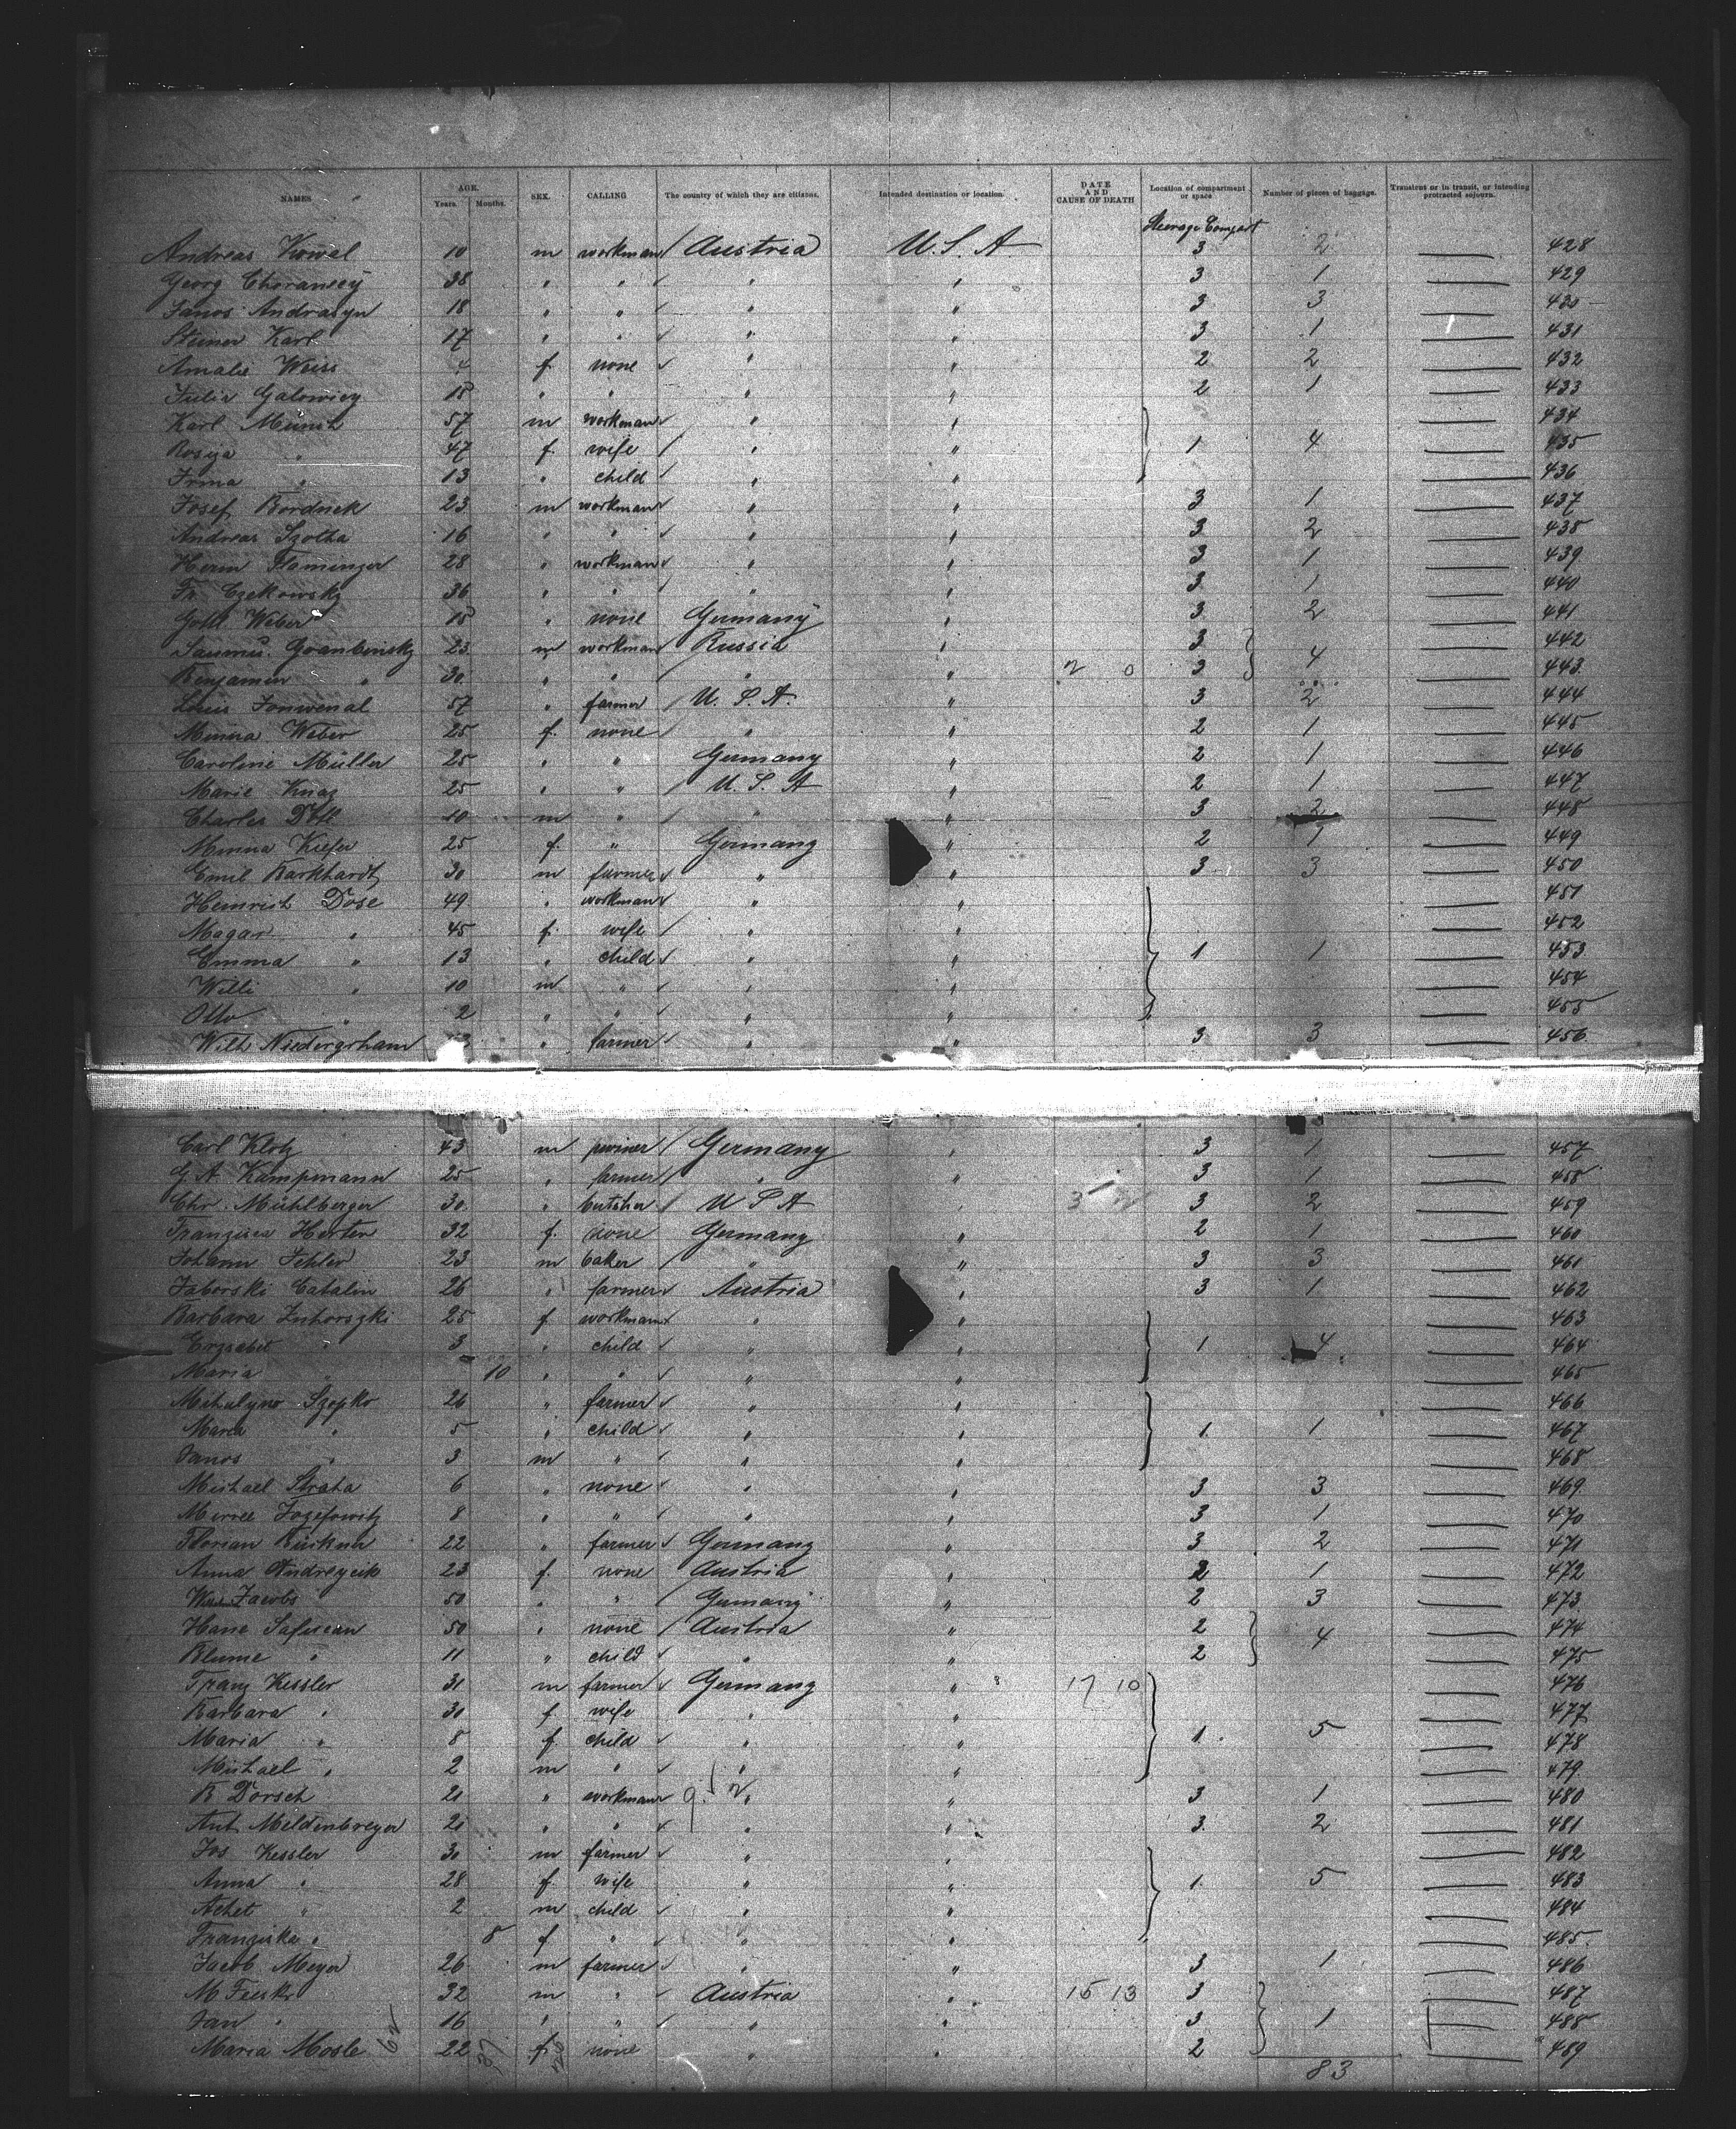 NAMES AGE. Years. Months. SEX. CALLING The country of which they are citizens. Intended destination or location. DATE AND CAUSE OF DEATH Location of compartment or space Number of pieces of baggage. Transient or in transit, or intending protracted sojourn.
Steerage Compart
Andreas Kowal 10 m workman Austria U.S.A 3 2 — 428
Georg 38 " " " " 3 1 — 429
Janos Andrasyn 18 " " " " 3 3 — 430
Steiner Karl 17 " " " " 3 1 — 431
Amalie Weiss 4 f none " " 2 2 — 432
Julia 18 " " " " 2 1 — 433
Karl Münch 57 m workman " " — 434
" 47 f. wife " " 1 4 — 435
Irma " 13 " child " " — 436
Josef Bordnek 23 m workman " " 3 1 — 437
Andreas Szotka 16 " " " " 3 2 — 438
Herm Flaminger 28 " workman " " 3 1 — 439
Fr. Czekowsky 36 " " " " 3 1 — 440
Weber 18 " none Germany " 3 2 — 441
23 m workman Russia " 3 4 — 442
Benjamin " 30 " " " " 2 0 3 — 443
Louis 57 " farmer U.S.A. " 3 2 — 444
Minna Weber 25 f. none " " 2 1 — 445
Caroline Müller 25 " " Germany " 2 1 — 446
Marie Knaz 25 " " U.S.A " 2 1 — 447
Charles 10 m " " " 3 2 — 448
Minna Kiefer 25 f. " Germany " 2 1 — 449
Emil Barkhardt 30 m farmer " " 3 3 — 450
Heinrich Dose 49 " workman " " — 451
Magar " 45 f. wife " " — 452
Emma " 13 " child " " 1 1 — 453
Willi " 10 m " " " — 454
Otto " 2 " " " " — 455
Wilh " farmer " " 3 3 — 456
Carl Klotz 43 m Germany " 3 1 — 457
G. A. Kampmann 25 " farmer " " 3 1 — 458
Chr. Mühlberger 30 " butcher U S A " 3 2 — 459
Herter 32 f. none Germany " 2 1 — 460
Johann Fehler 23 m baker " " 3 3 — 461
Catalin 26 " farmer Austria " 3 1 — 462
Barbara 25 f workman " " — 463
Erzsebet " 3 " child " " 1 4 — 464
Maria " 10 " " " " — 465
Szopko 26 " farmer " " — 466
Maria " 5 " child " " 1 1 — 467
Janos " 3 m " " " — 468
Michael Strata 6 " none " " 3 3 — 469
8 " " " " 3 1 — 470
Florian 22 " farmer Germany " 3 2 — 471
Anna Andreycik 23 f. none Austria " 2 1 — 472
Jacobs 50 " " Germany " 2 3 — 473
Hane 50 " none Austria " 2 4 — 474
Blume " 11 " child " " 2 — 475
Franz Kessler 31 m farmer Germany " 17 10 — 476
Barbara " 30 f wife " " — 477
Maria " 8 f. child " " 1 5 — 478
Michael " 2 m " " " — 479
R Dorsch 21 " workman " " 3 1 — 480
Ant. 21 " " " " 3 2 — 481
Jos Kessler 30 m farmer " " — 482
Anna " 28 f. wife " " 1 5 — 483
" 2 m child " " — 484
Franziska " 8 f " " " — 485
Jacob Meyer 26 m farmer " " 3 1 — 486
M 32 m " Austria " 15 13 3 — 487
Jan " 16 " " " " 3 1 — 488
Maria Mosle 22 f. none " " 2 — 489
83